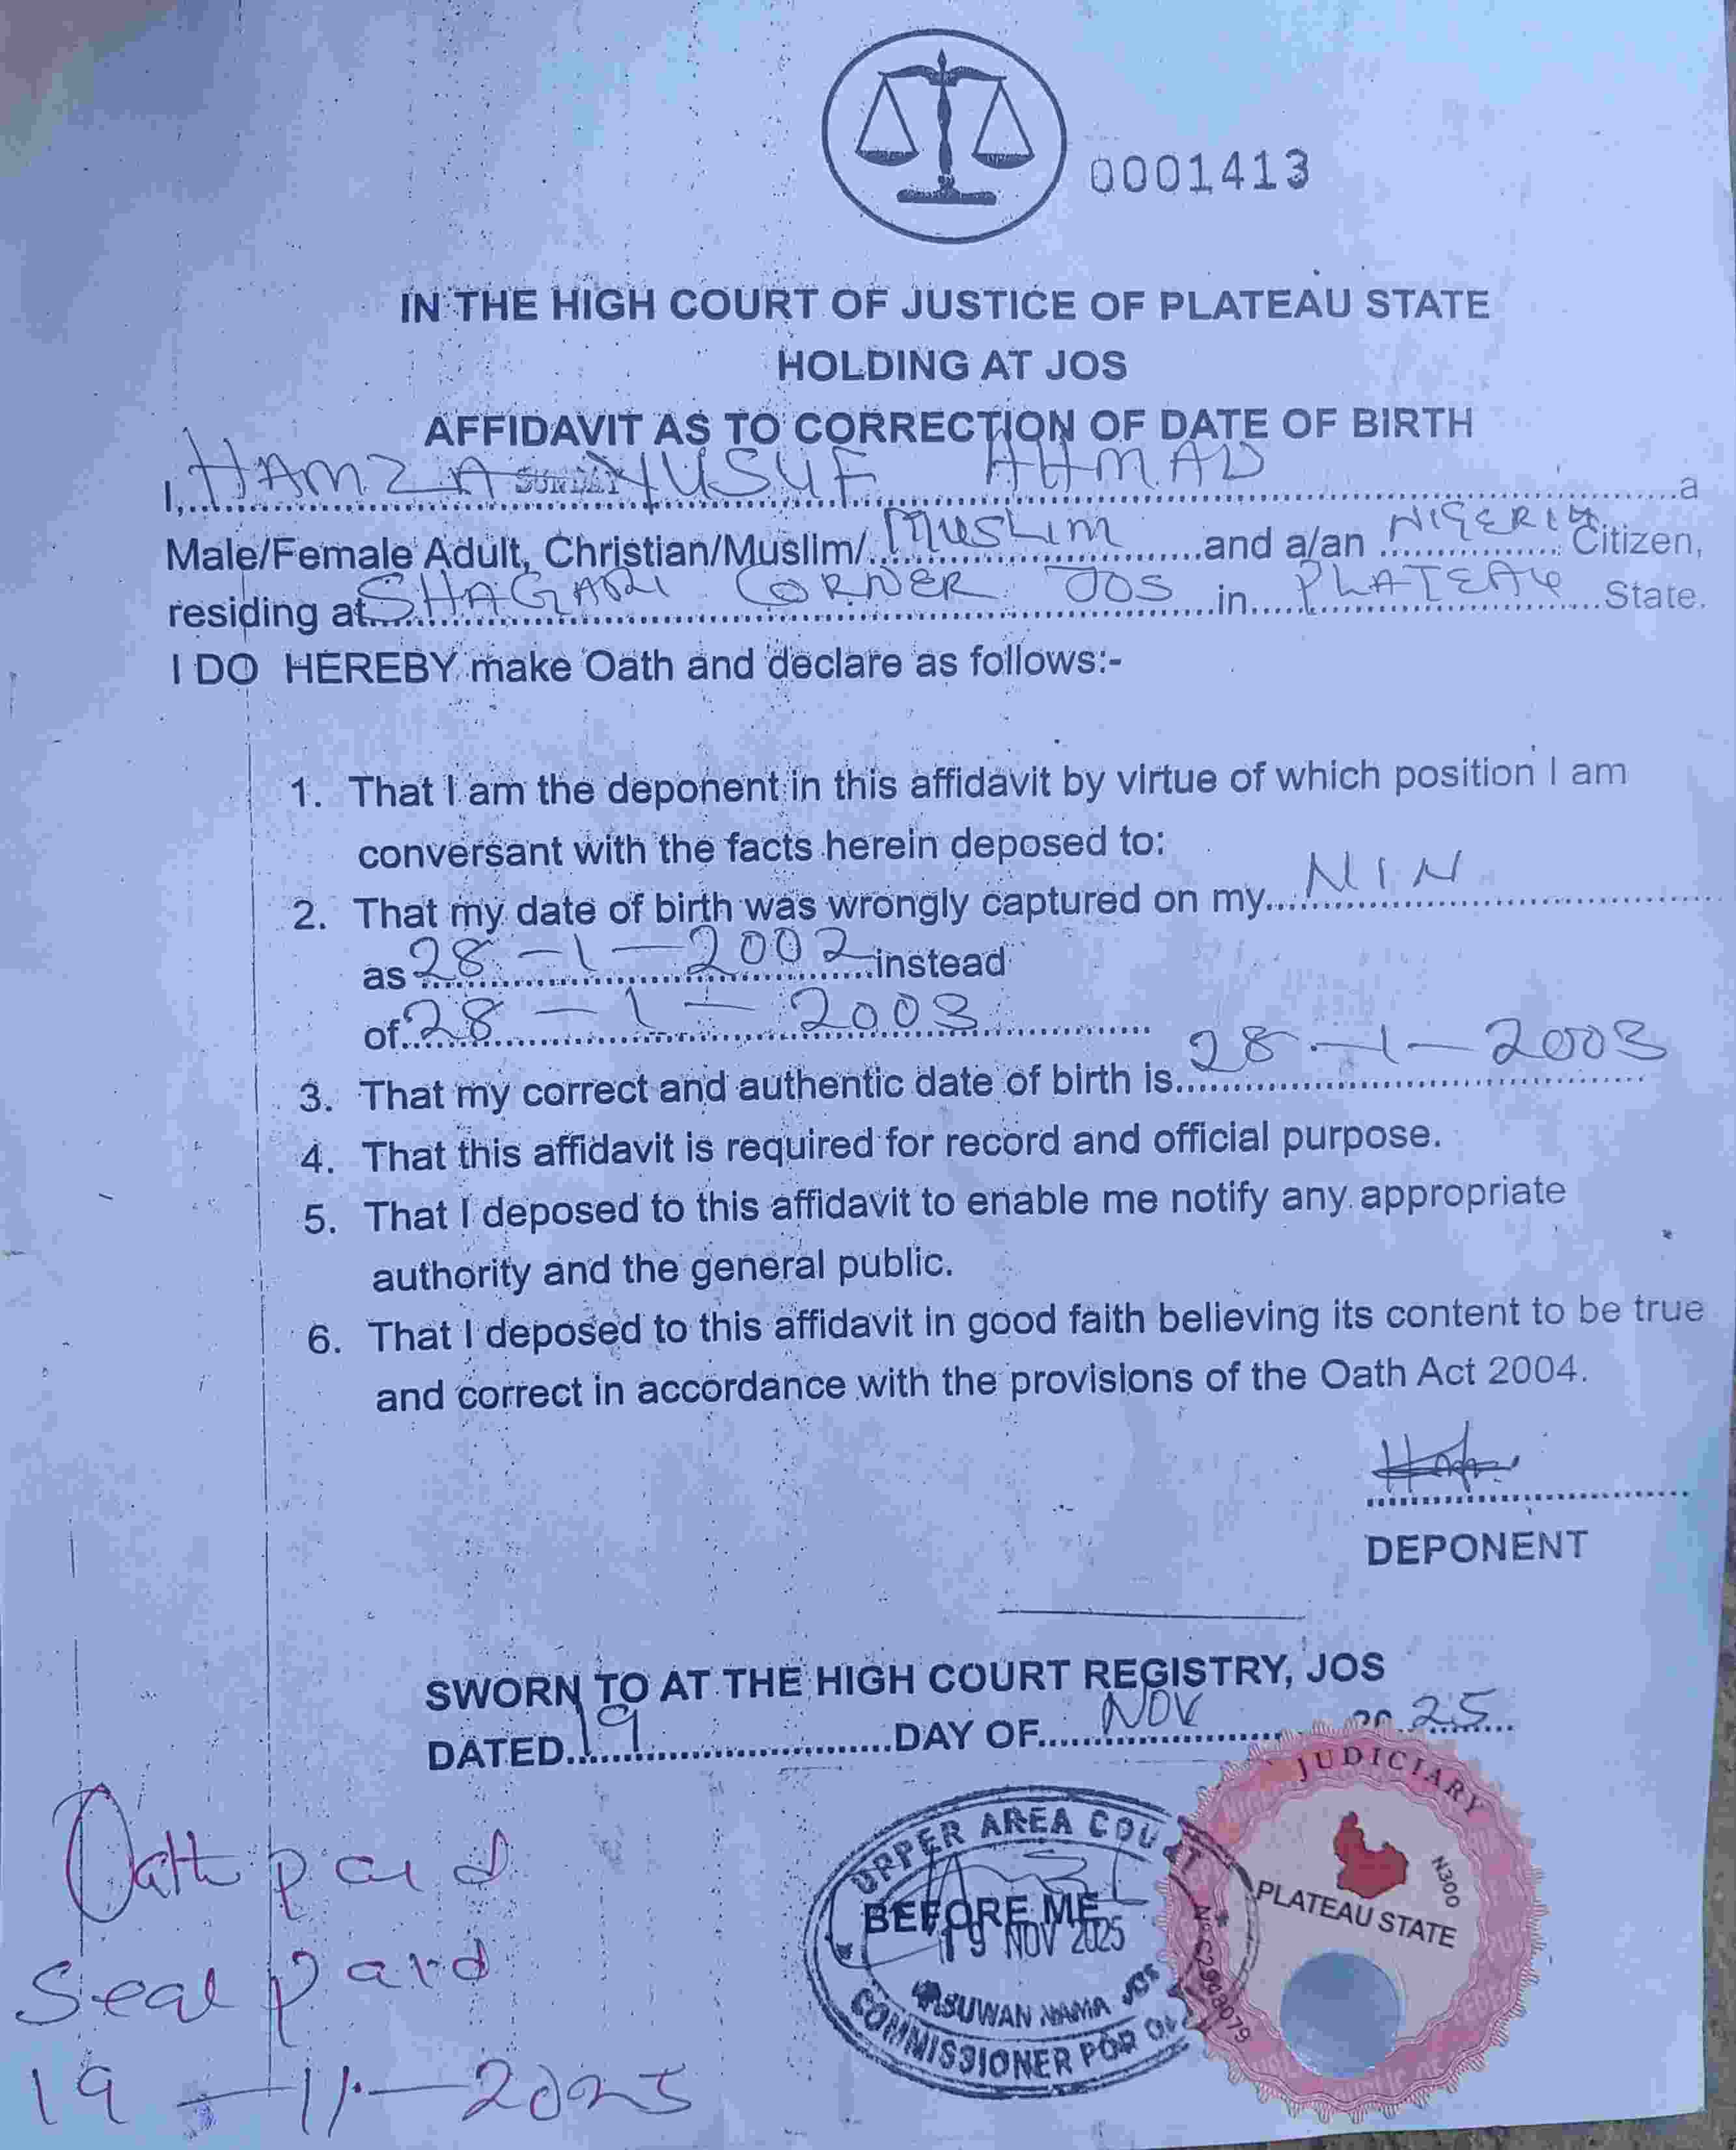 0001413
IN THE HIGH COURT OF JUSTICE OF PLATEAU STATE
HOLDING AT JOS
AFFIDAVIT AS TO CORRECTION OF DATE OF BIRTH
I, HAMZA YUSUF AHMAD a
Male/Female Adult, Christian/Muslim/ MUSLIM and a/an NIGERIA Citizen,
residing at SHAGARI CORNER JOS in PLATEAU State.
I DO HEREBY make Oath and declare as follows:-
1. That I am the deponent in this affidavit by virtue of which position I am
conversant with the facts herein deposed to:
2. That my date of birth was wrongly captured on my NIN
as 28-1-2002 instead
of 28-1-2003
3. That my correct and authentic date of birth is 28-1-2003
4. That this affidavit is required for record and official purpose.
5. That I deposed to this affidavit to enable me notify any appropriate
authority and the general public.
6. That I deposed to this affidavit in good faith believing its content to be true
and correct in accordance with the provisions of the Oath Act 2004.
DEPONENT
SWORN TO AT THE HIGH COURT REGISTRY, JOS
DATED 19 DAY OF NOV 20 25
Oath paid
Seal paid
19-11-2025
UPPER AREA COURT
BEFORE ME
19 NOV 2025
NAMA JOS
COMMISSIONER FOR
JUDICIARY
PLATEAU STATE
N300